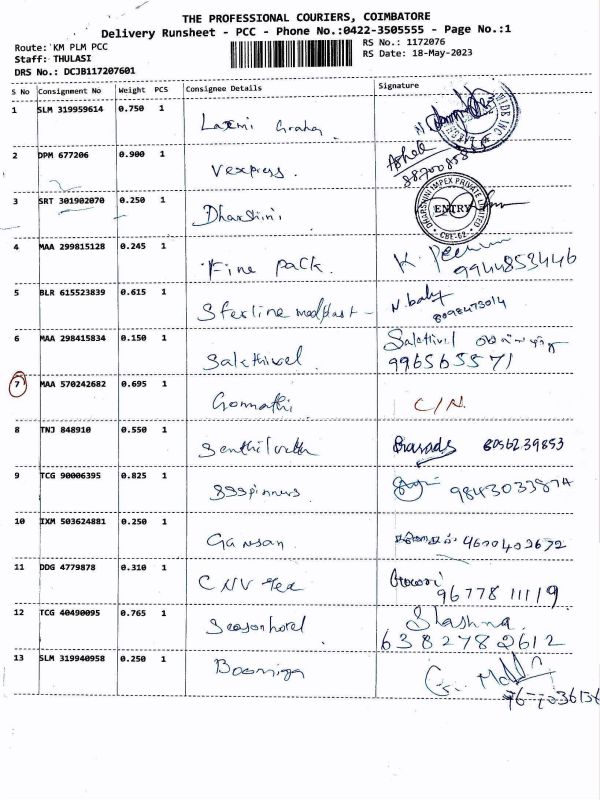 THE PROFESSIONAL COURIERS, COIMBATORE
Delivery Runsheet - PCC - Phone No.:0422-3505555 - Page No.:1
Route: KM PLM PCC
RS No.: 1172076
Staff: THULASI
RS Date: 18-May-2023
DRS No.: DCJB117207601
S No Consignment No Weight PCS Consignee Details Signature
1 SLM 319959614 0.750 1 Laxmi
2 DPM 677206 0.900 1 Vexpress.
3 SRT 301902070 0.250 1 Dharshini
DHARSHINI IMPEX PRIVATE LIMITED
ENTRY
CBE-62
4 MAA 299815128 0.245 1 Fine pack. K.
9944853446
5 BLR 615523839 0.615 1 N. baby
8098475014
6 MAA 298415834 0.150 1 Sakthivel Sakthivel
996565571
7 MAA 570242682 0.695 1 Gomathi C/N.
8 TNJ 848910 0.550 1 8056239853
9 TCG 90006395 0.825 1 SSSpinners
10 IXM 503624881 0.250 1 Gansan
11 DDG 4779878 0.310 1 CNV Tex
9677811119
12 TCG 40490095 0.765 1 Season hotel
6382782612
13 SLM 319940958 0.250 1 Boomiga